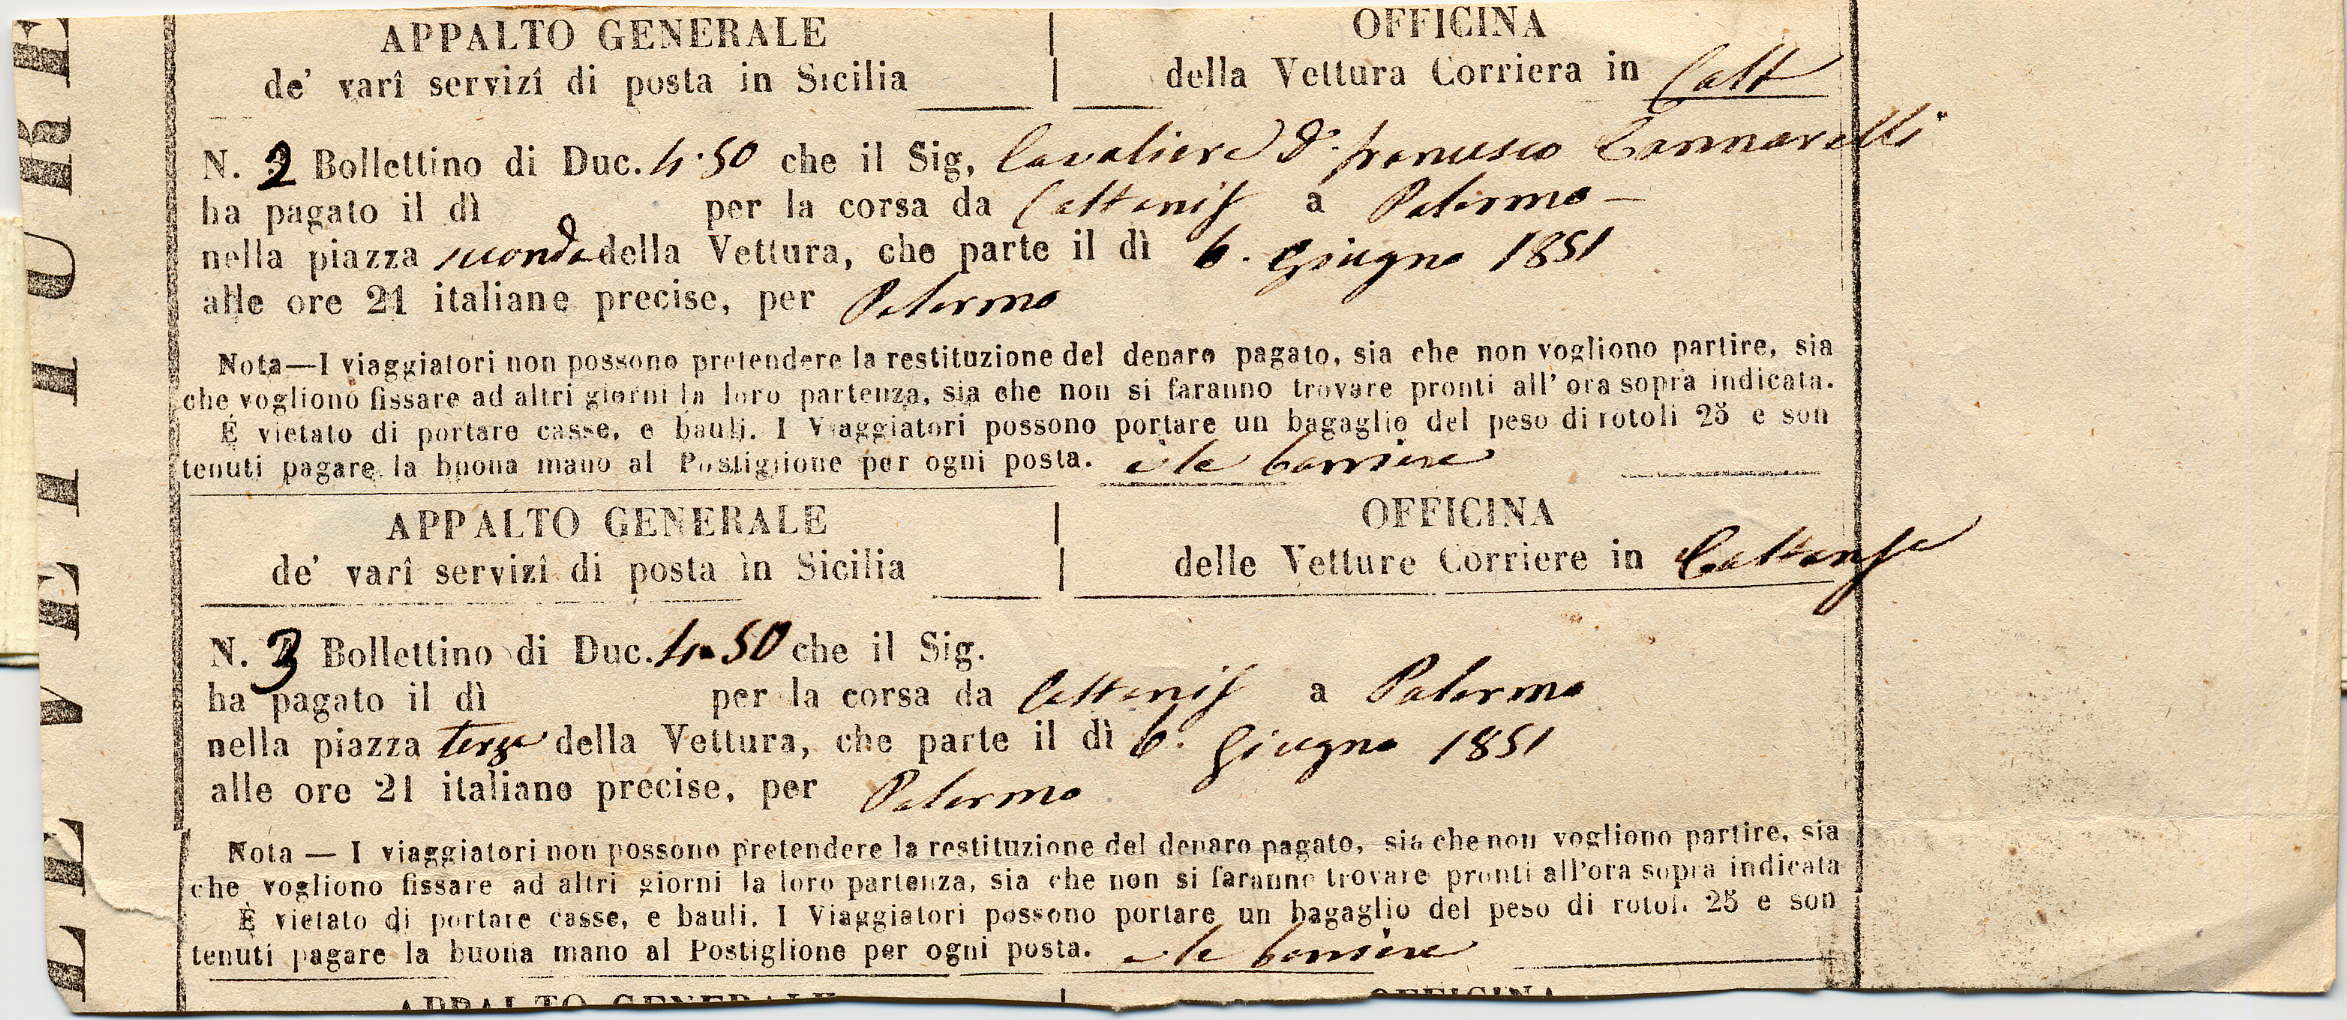 LE VETTURE
APPALTO GENERALE
de' varî servizî di posta in Sicilia
OFFICINA
della Vettura Corriera in Catt
N. 2 Bollettino di Duc. 4.50 che il Sig, Cavaliere D. Francesco
ha pagato il dì per la corsa da a Palermo
nella piazza seconda della Vettura, che parte il dì 6. Giugno 1851
alle ore 21 italiane precise, per Palermo
Nota—I viaggiatori non possono pretendere la restituzione del denaro pagato, sia che non vogliono partire, sia
che vogliono fissare ad altri giorni la loro partenza, sia che non si faranno trovare pronti all' ora sopra indicata.
È vietato di portare casse, e bauli. I Viaggiatori possono portare un bagaglio del peso di rotoli 25 e son
tenuti pagare la buona mano al Postiglione per ogni posta. e le barriere
APPALTO GENERALE
de' varî servizî di posta in Sicilia
OFFICINA
delle Vetture Corriere in
N. 3 Bollettino di Duc. 4.50 che il Sig.
ha pagato il dì per la corsa da a Palermo
nella piazza terza della Vettura, che parte il dì 6. Giugno 1851
alle ore 21 italiane precise, per Palermo
Nota — I viaggiatori non possono pretendere la restituzione del denaro pagato, sia che non vogliono partire, sia
che vogliono fissare ad altri giorni la loro partenza, sia che non si faranno trovare pronti all'ora sopra indicata
È vietato di portare casse, e bauli. I Viaggiatori possono portare un bagaglio del peso di rotol. 25 e son
tenuti pagare la buona mano al Postiglione per ogni posta. e le barriere
APPALTO GENERALE
OFFICINA